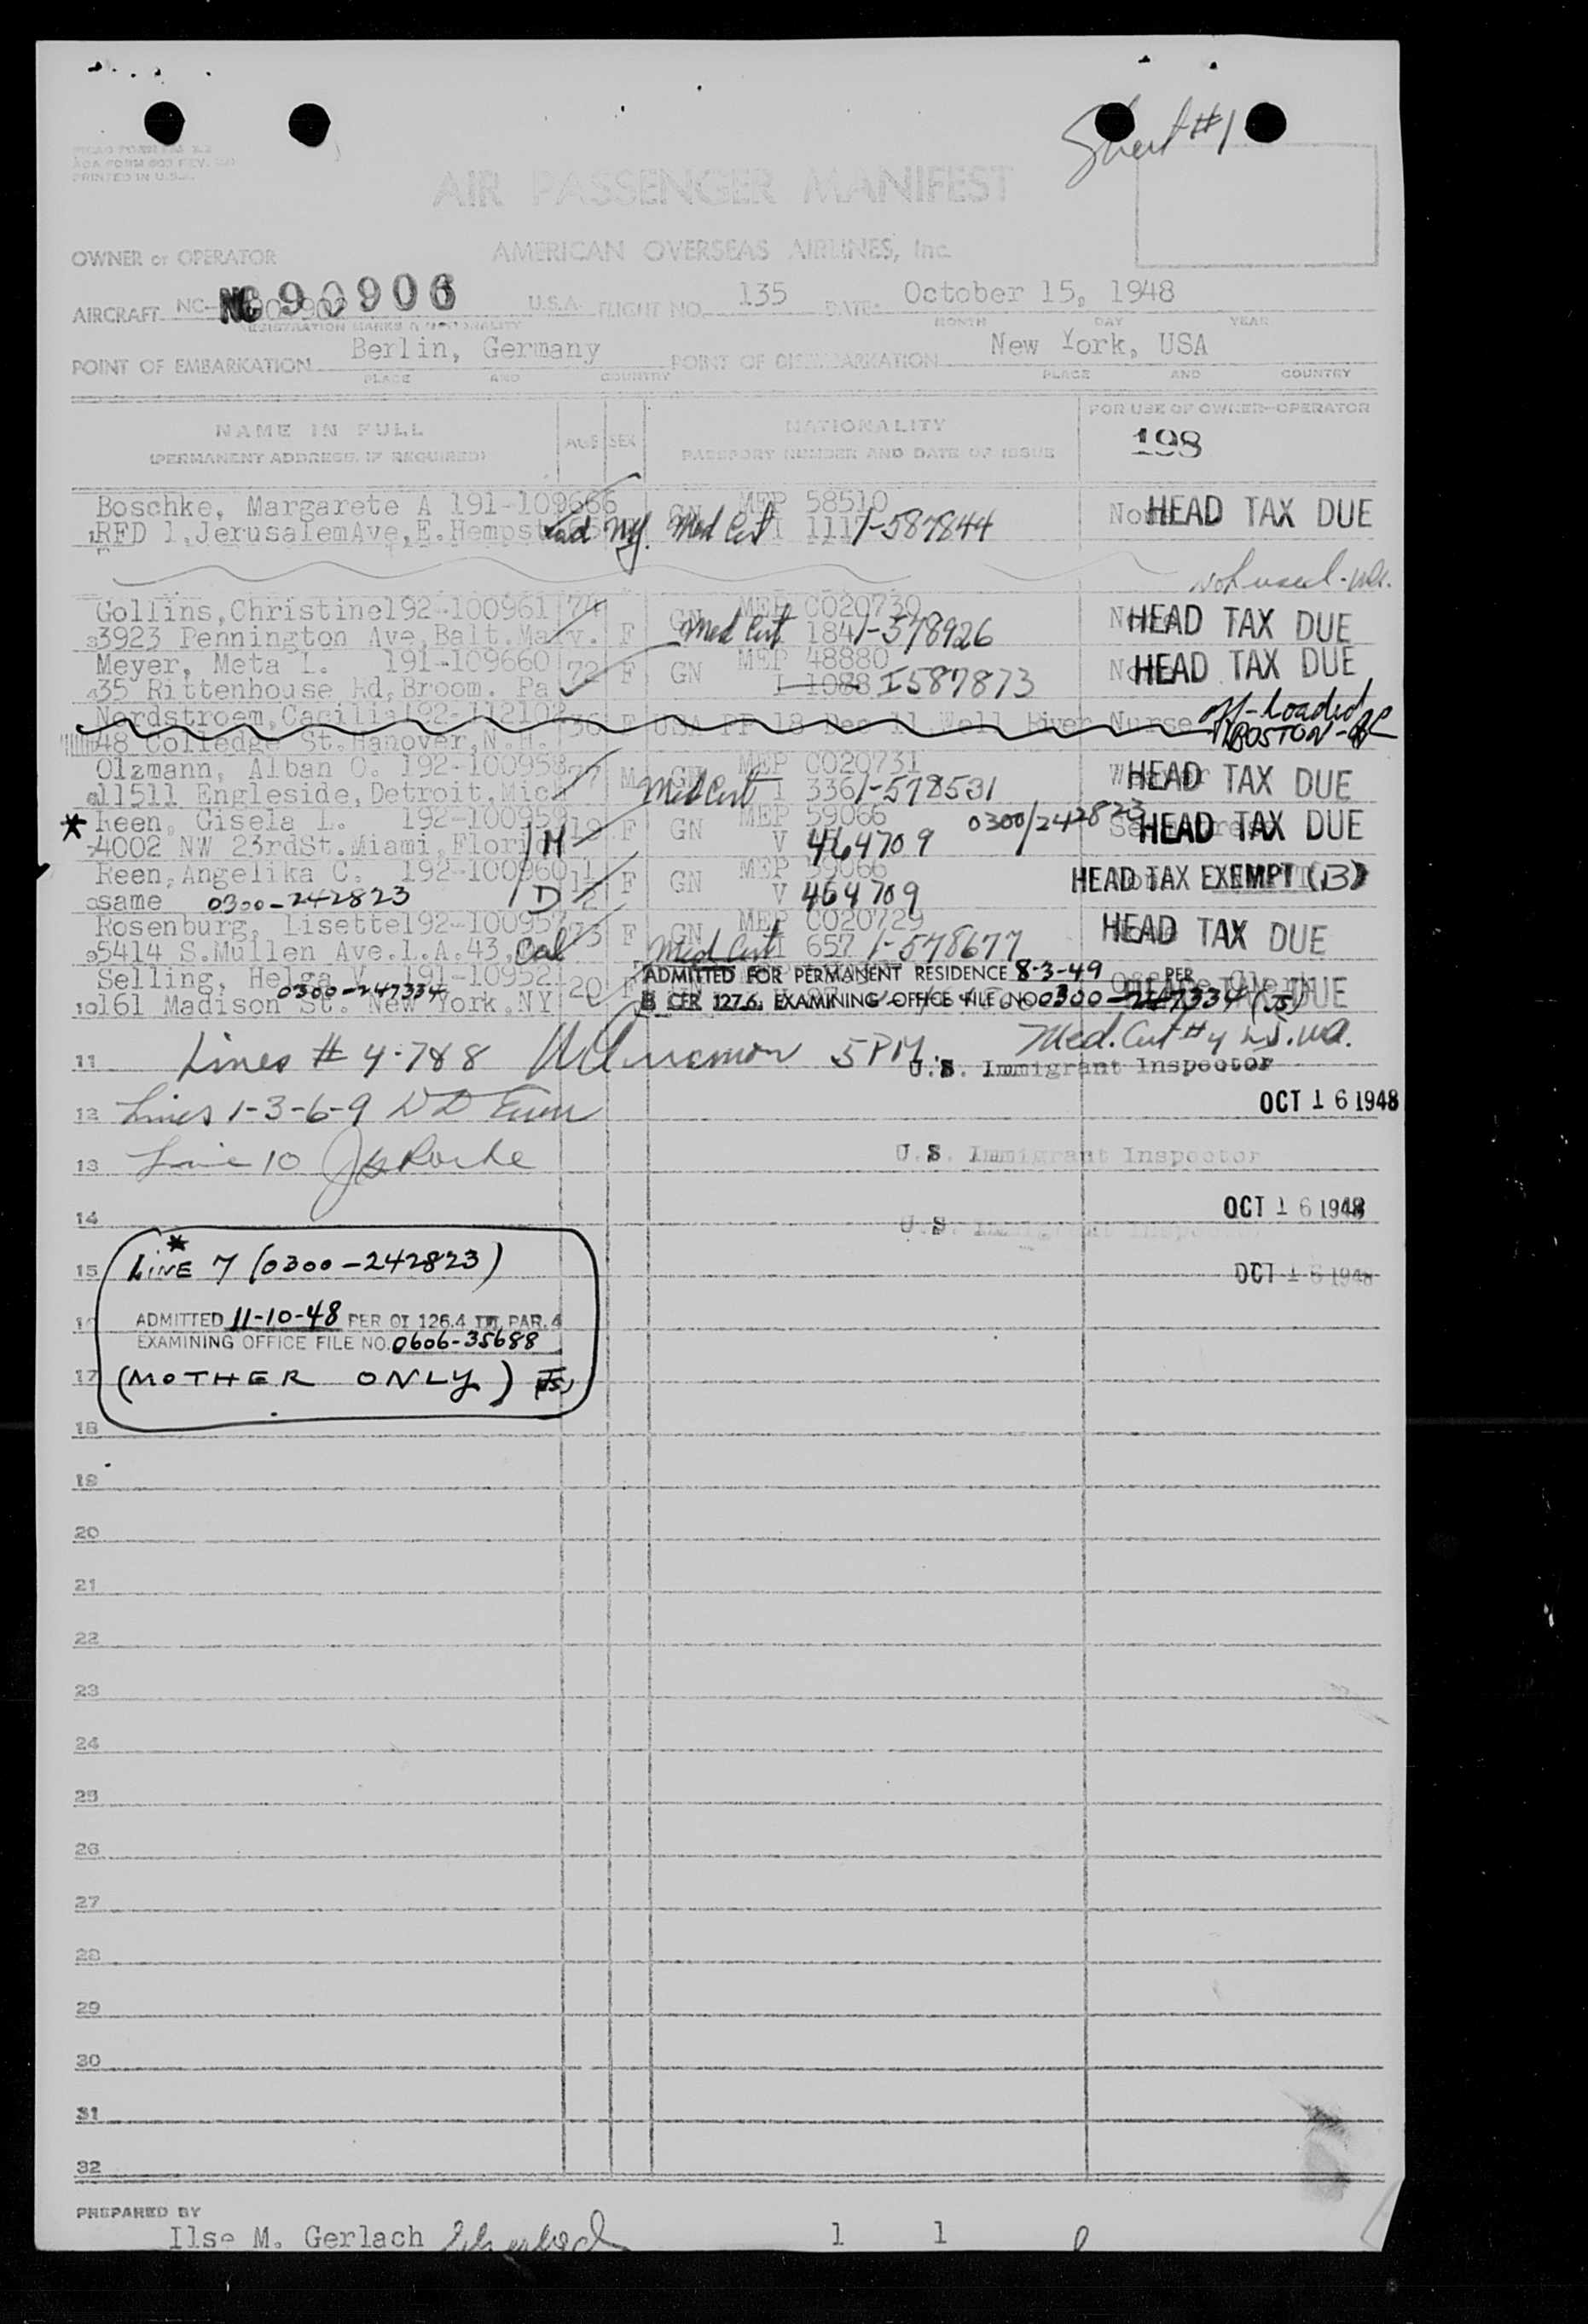 Sheet #1
PRINTED IN U.S.A.
AIR PASSENGER MANIFEST
OWNER or OPERATOR AMERICAN OVERSEAS AIRLINES, Inc.
AIRCRAFT NC- NC 90906 U.S.A. FLIGHT NO. 135 DATE- October 15, 1948
REGISTRATION MARKS & NATIONALITY MONTH DAY YEAR
POINT OF EMBARKATION Berlin, Germany POINT OF DISEMBARKATION New York, USA
PLACE AND COUNTRY PLACE AND COUNTRY
NAME IN FULL AGE SEX NATIONALITY FOR USE OF OWNER-OPERATOR
(PERMANENT ADDRESS, IF REQUIRED) PASSPORT NUMBER AND DATE OF ISSUE 198
Boschke, Margarete A 191-109666 GN MEP 58510 HEAD TAX DUE
1RFD 1,JerusalemAve,E.Hempstead NY. Med Cert I 1117 I-587844
Not used
Gollins,Christine192-100961 74 GN MEP CO20730 HEAD TAX DUE
33923 Pennington Ave,Balt.Ma F Med Cert 184 I-578926
Meyer, Meta L. 191-109660 72 F GN MEP 48880 HEAD TAX DUE
435 Rittenhouse Rd,Broom. Pa I 1088 I587873
Nordstroem,Cacilia192-112102 36 F USA PP 18 Dec Nurse off-loaded
48 Colledge St.Hanover,N.H. BOSTON
Olzmann, Alban O. 192-100958 77 M GN MEP CO20731 HEAD TAX DUE
611511 Engleside,Detroit,Mich Med Cert I 336 I-578531
* Reen, Gisela L. 192-100959 19 F GN MEP 59066 0300/242823 HEAD TAX DUE
74002 NW 23rdSt.Miami,Florida 1 M V 464709
Reen,Angelika C. 192-100960 1 F GN MEP 59066 HEAD TAX EXEMPT (13)
8same 0300-242823 1 D V 464709
Rosenburg, Lisette192-100957 73 F GN MEP CO20729 HEAD TAX DUE
95414 S.Mullen Ave.L.A.43,Cal Med Cert I 657 I-578677
Selling, Helga V. 191-10952 20 F ADMITTED FOR PERMANENT RESIDENCE 8-3-49 PER
0300-247334
10161 Madison St. New York.NY 8 CFR 127.6, EXAMINING OFFICE FILE NO 0300-247334 (JS)
11 Lines # 4-7&8 5 PM. Med. Cert #4
U.S. Immigrant Inspector
12 Lines 1-3-6-9 OCT 16 1948
13 Line 10 U.S. Immigrant Inspector
14 OCT 16 1948
U.S. Immigrant Inspector
*
15 LINE 7 (0300-242823) OCT 16 1948
16 ADMITTED 11-10-48 PER OI 126.4 PAR. 4
EXAMINING OFFICE FILE NO. 0606-35688
17 (MOTHER ONLY) (JS)
18
19
20
21
22
23
24
25
26
27
28
29
30
31
32
PREPARED BY
Ilse M. Gerlach 1 1 0